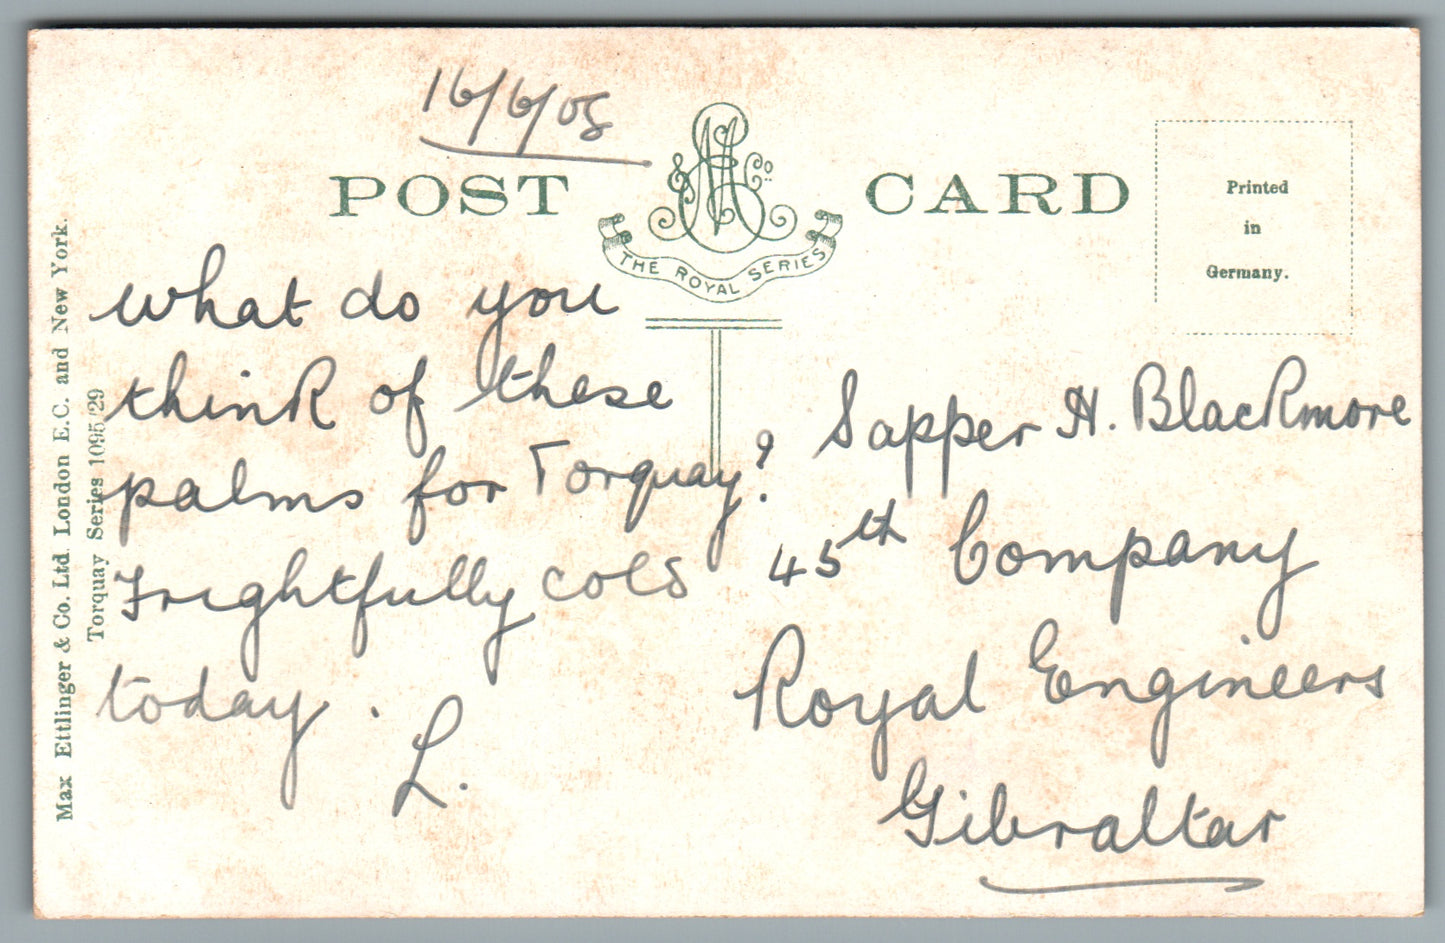 16/6/05
POST CARD
& Co.
THE ROYAL SERIES
Printed
in
Germany.
Max Ettlinger & Co. Ltd. London E.C. and New York.
Torquay Series 1095/29
What do you
think of these
palms for Torquay?
Frightfully cold
today.
L.
Sapper H. Blackmore
45th Company
Royal Engineers
Gibraltar